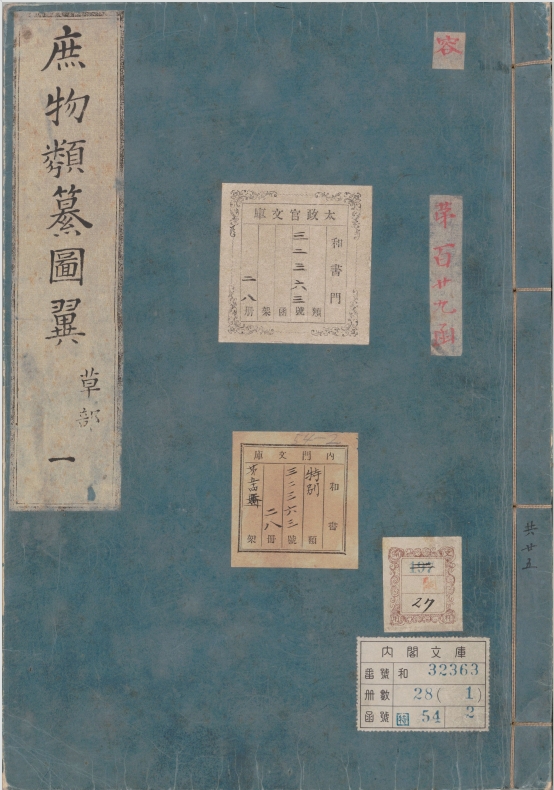 庶物類纂圖翼
草部
一
容
第百廿九函
太政官文庫
和書門
三二三六三
二八
類號函架冊
54-2
内閣文庫
和書
特別
三二三六三
二八
類號冊架
共廿五
197
27
内閣文庫
番號 和 32363
册數 28(1)
函號 特 54 2